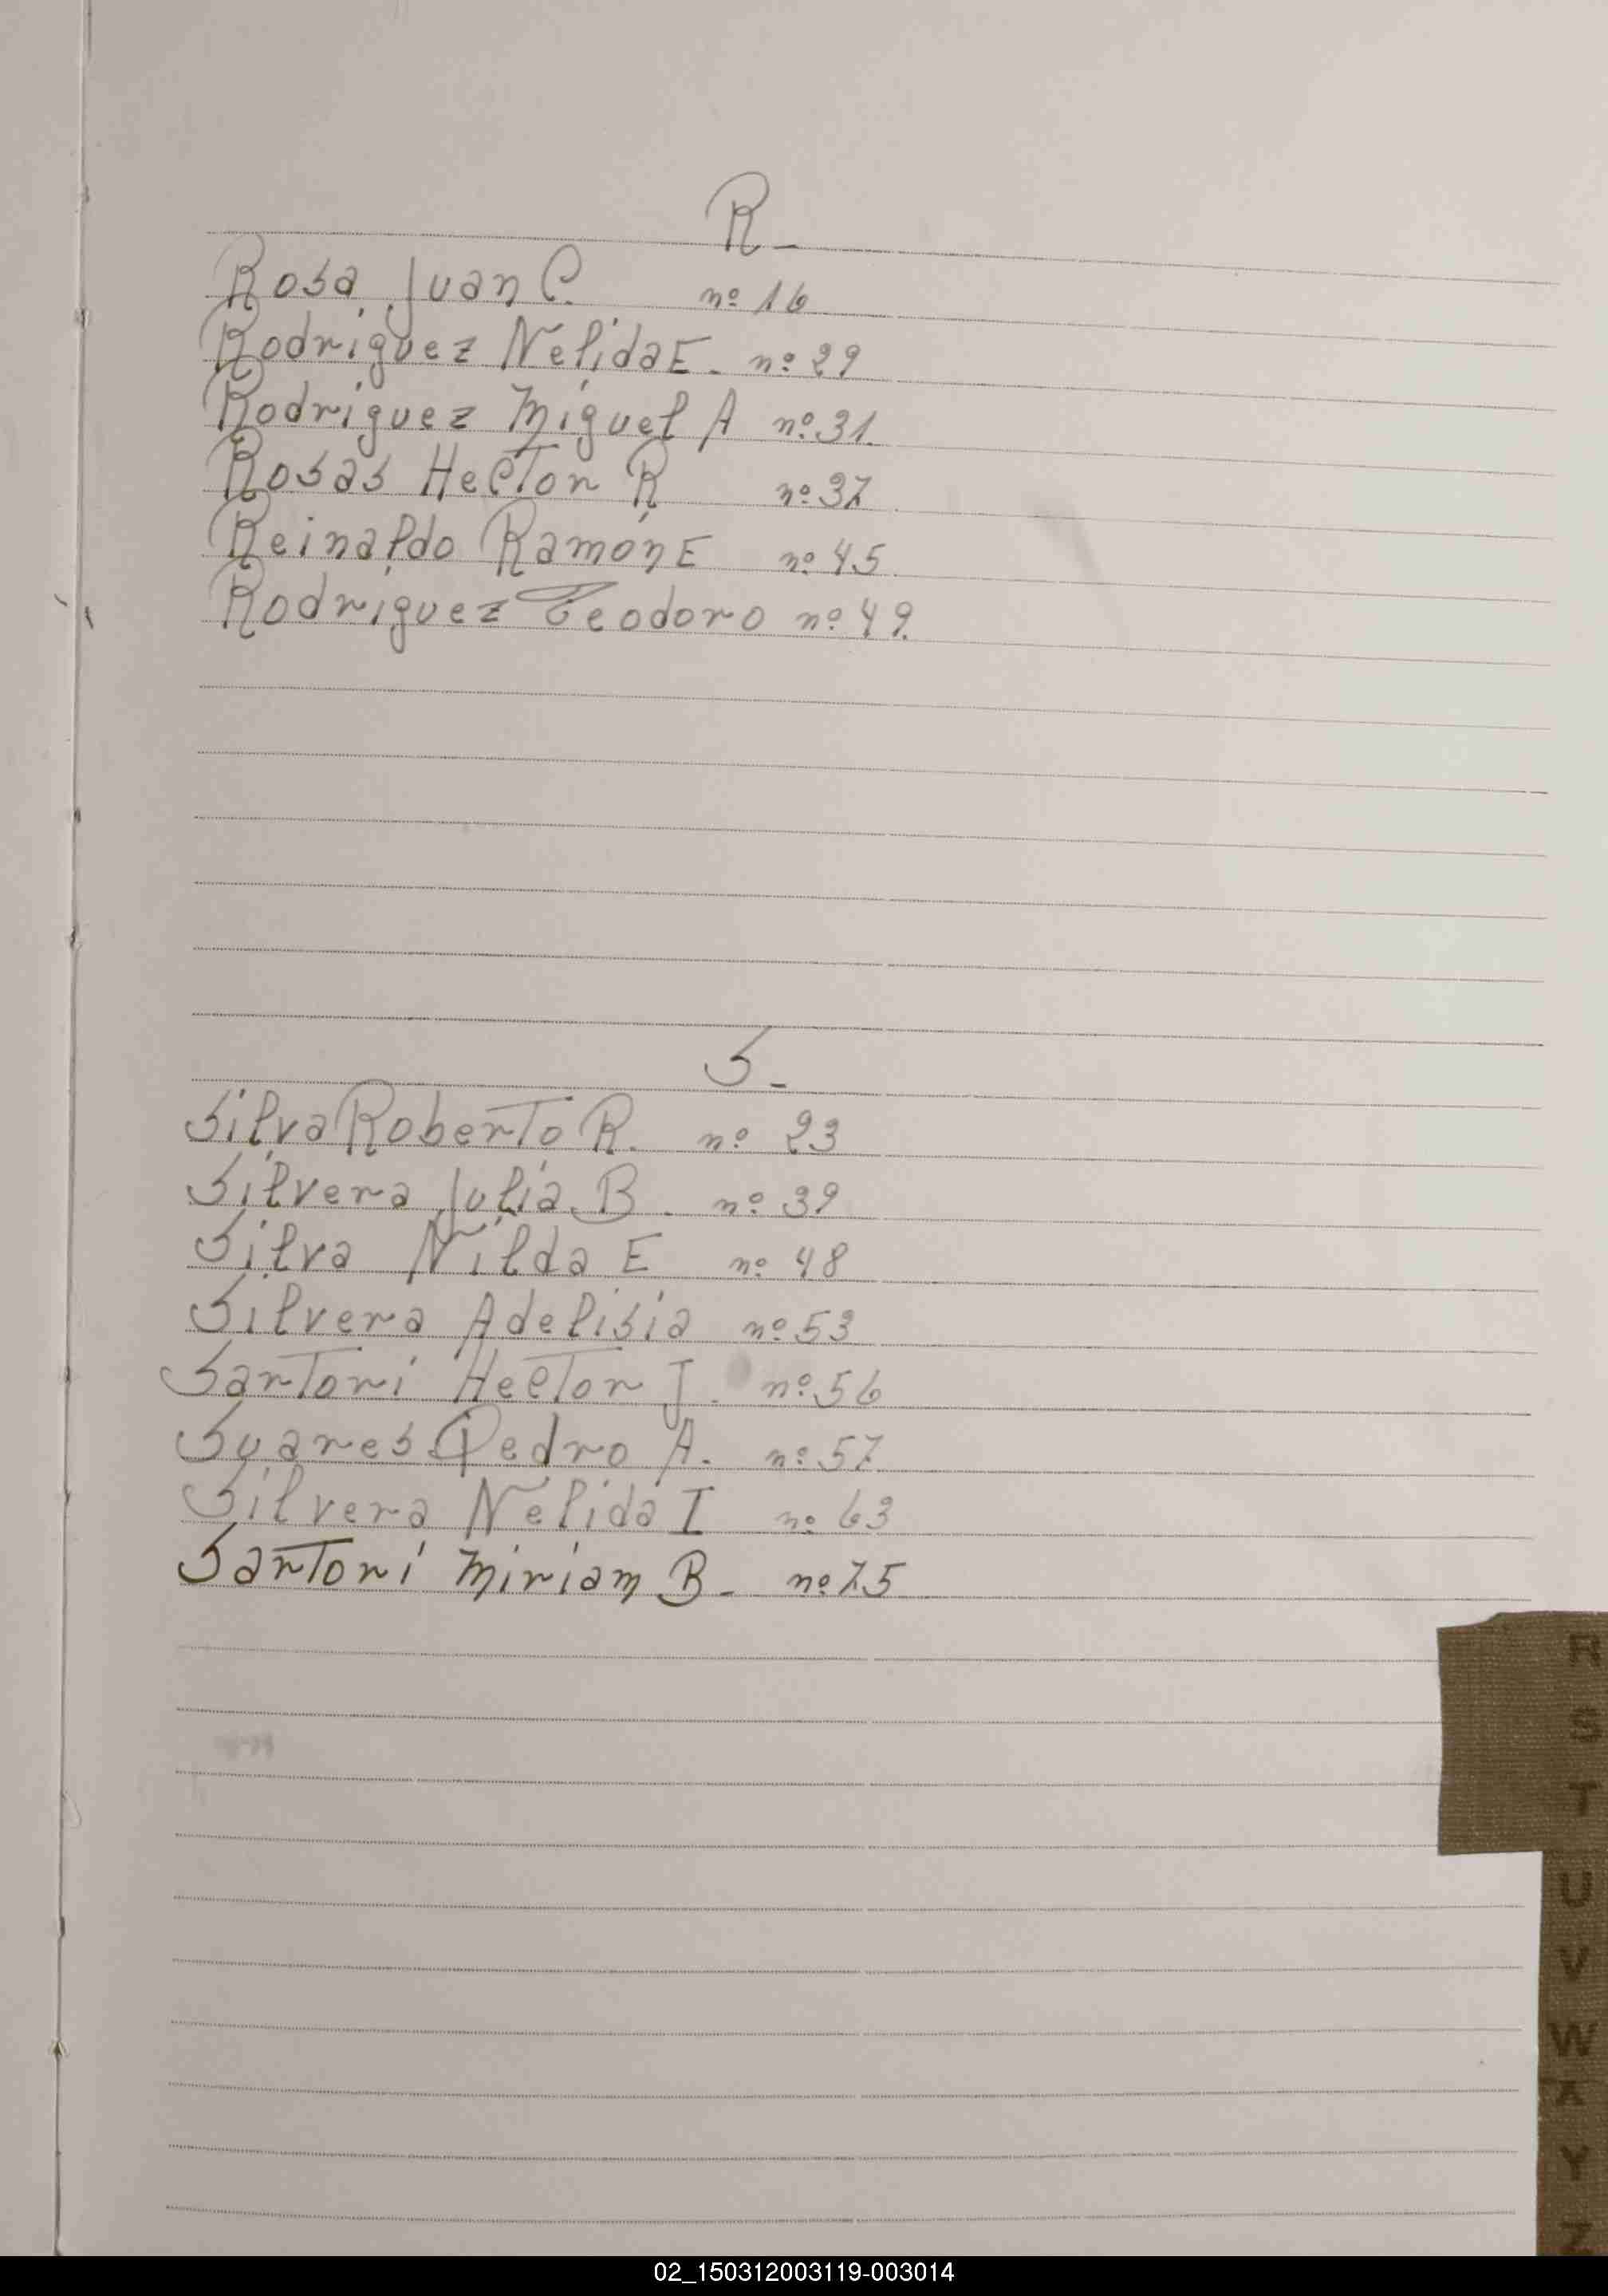 R-
Rosa Juan C. nº 16
Rodriguez Nelida E. nº 29
Rodriguez Miguel A nº 31
Rosas Hector R nº 37
Reinaldo Ramón E nº 45
Rodriguez Teodoro nº 49.
S-
Silva Roberto R. nº 23
Silvera Julia B. nº 39
Silva Nilda E nº 48
Silvera Adelisia nº 53
Sartori Hector J. nº 56
Suares Pedro A. nº 57
Silvera Nelida I nº 63
Sartori Miriam B- nº 75
R
S
T
U
V
W
X
Y
Z
02_150312003119-003014